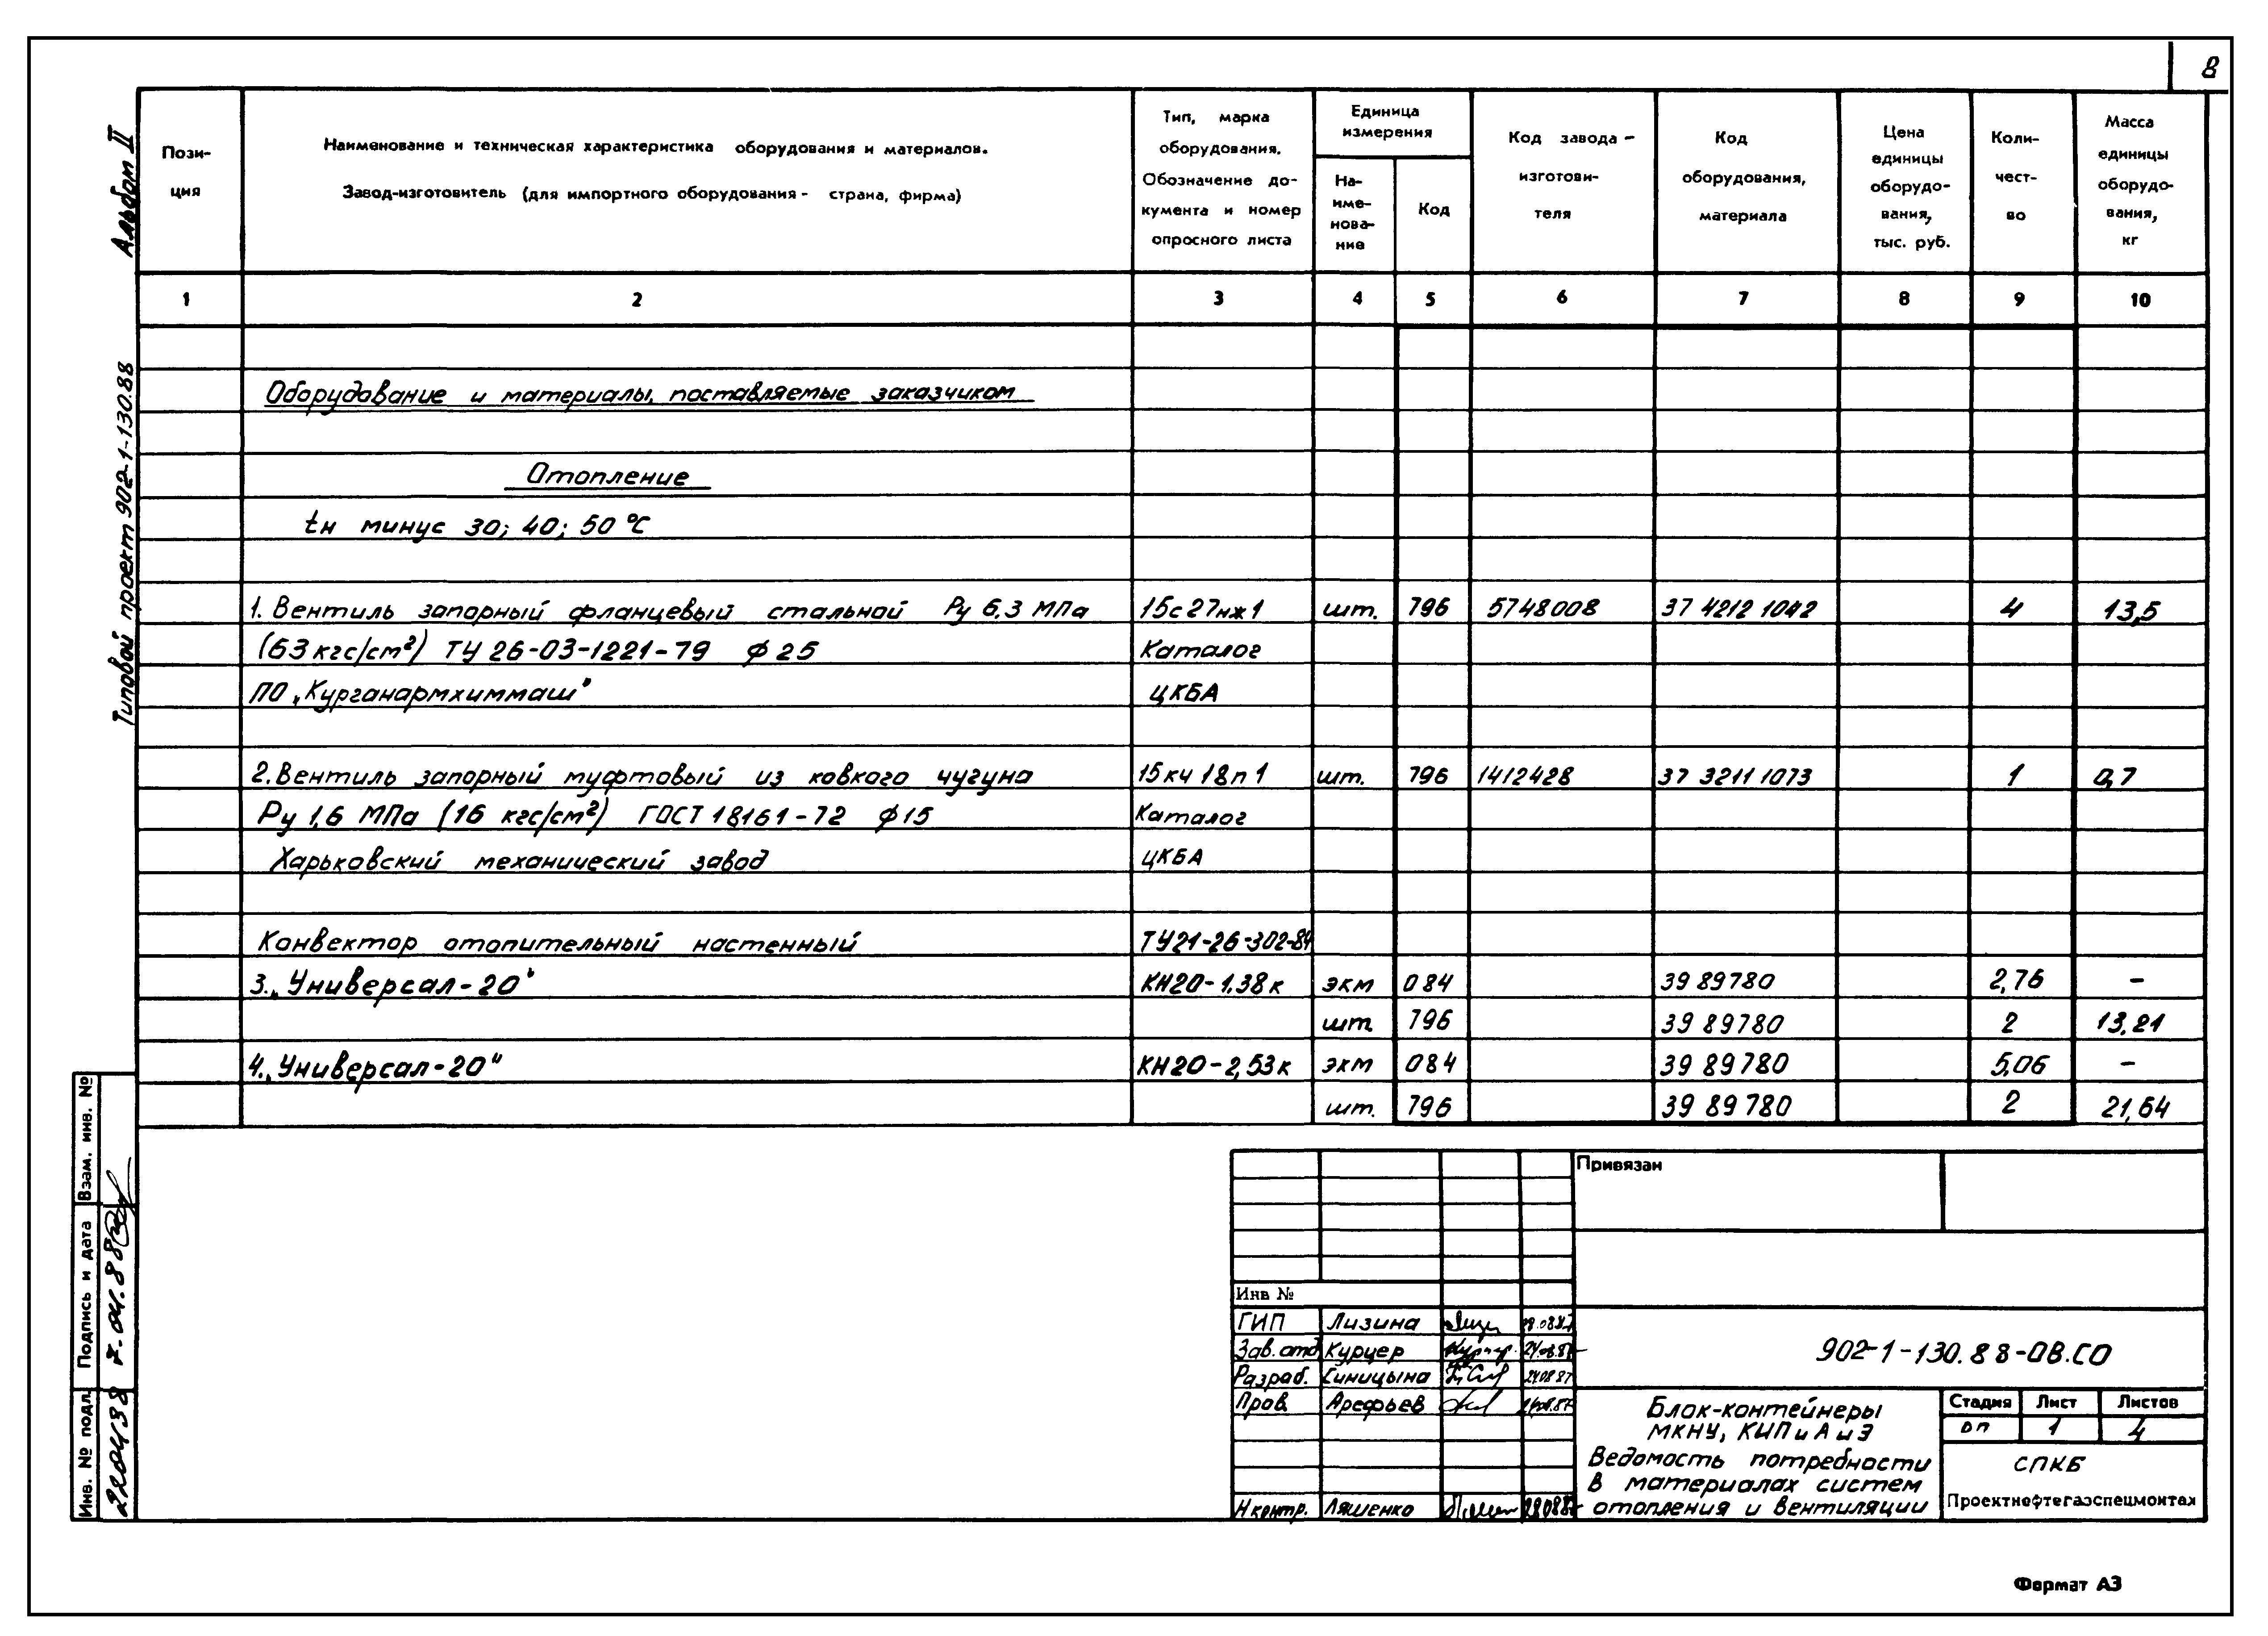 8
Альбом II
Типовой проект 902-1-130.88
Пози-
ция
Наименование и техническая характеристика оборудования и материалов.
Завод-изготовитель (для импортного оборудования - страна, фирма)
Тип, марка
оборудования.
Обозначение до-
кумента и номер
опросного листа
Единица
измерения
На-
име-
нова-
ние
Код
Код завода -
изготови-
теля
Код
оборудования,
материала
Цена
единицы
оборудо-
вания,
тыс. руб.
Коли-
чест-
во
Масса
единицы
оборудо-
вания,
кг
1 2 3 4 5 6 7 8 9 10
Оборудование и материалы, поставляемые заказчиком
Отопление
tн минус 30; 40; 50 °С
1. Вентиль запорный фланцевый стальной Ру 6.3 МПа 15с27нж1 шт. 796 5748008 37 4212 1042 4 13,5
(63 кгс/см²) ТУ 26-03-1221-79 ф 25 Каталог
ПО „Курганармхиммаш" ЦКБА
2. Вентиль запорный муфтовый из ковкого чугуна 15кч 18п1 шт. 796 1412428 37 3211 1073 1 0,7
Ру 1,6 МПа (16 кгс/см²) ГОСТ 18161-72 ф 15 Каталог
Харьковский механический завод ЦКБА
Конвектор отопительный настенный ТУ21-26-302-84
3. „Универсал-20" КН20-1.38к экм 084 39 89780 2,76 -
шт 796 39 89780 2 13,21
4. „Универсал-20" КН20-2,53к экм 084 39 89780 5,06 -
шт. 796 39 89780 2 21,64
Взам. инв. №
Подпись и дата
7.04.88
Инв. № подл.
Привязан
Инв №
ГИП Лизина
Зав. отд Курцер
Разраб. Синицына 24.08.87
Пров. Арефьев
Н контр. Ляшенко
902-1-130.88-ОВ.СО
Блок-контейнеры
МКНУ, КИПиА и Э
Ведомость потребности
в материалах систем
отопления и вентиляции
Стадия Лист Листов
РП 1 4
СПКБ
Проектнефтегазспецмонтаж
Формат А3